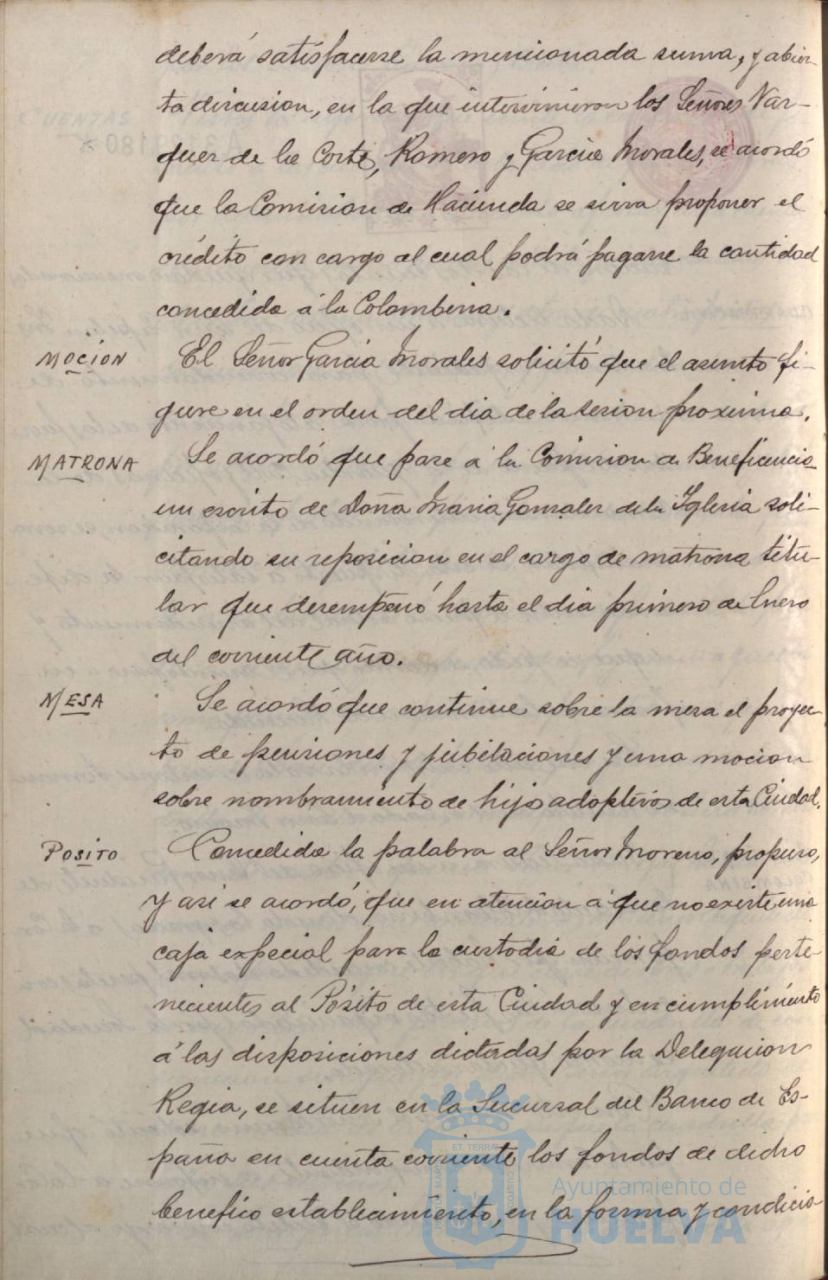 deberá satisfacerse la mencionada suma, y abier-
ta discusion, en la que intervinieron los Señores Vaz-
quez de la Corte, Romero y Garcia Morales, se acordó
que la Comision de Hacienda se sirva proponer el
crédito con cargo al cual podrá pagarse la cantidad
concedida á la Colombina.
MOCION
El Señor Garcia Morales solicitó que el asunto fi-
gure en el orden del dia de la sesion proxima.
MATRONA
Se acordó que pase á la Comision de Beneficencia
un escrito de Doña Maria Gonzalez de la Iglesia soli-
citando su reposicion en el cargo de matrona titu-
lar que desempeñó hasta el dia primero de Enero
del corriente año.
MESA
Se acordó que continue sobre la mesa el proyec-
to de pensiones y jubilaciones y una mocion
sobre nombramiento de hijo adoptivos de esta Ciudad.
POSITO
Concedida la palabra al Señor Moreno, propuso,
y asi se acordó, que en atencion a que no existe una
caja especial para la custodia de los fondos perte-
necientes al Pósito de esta Ciudad y en cumplimiento
á las disposiciones dictadas por la Delegacion
Regia, se situen en la Sucursal del Banco de Es-
paña en cuenta corriente los fondos de dicho
benefico establecimiento, en la forma y condicio-
Ayuntamiento de
HUELVA